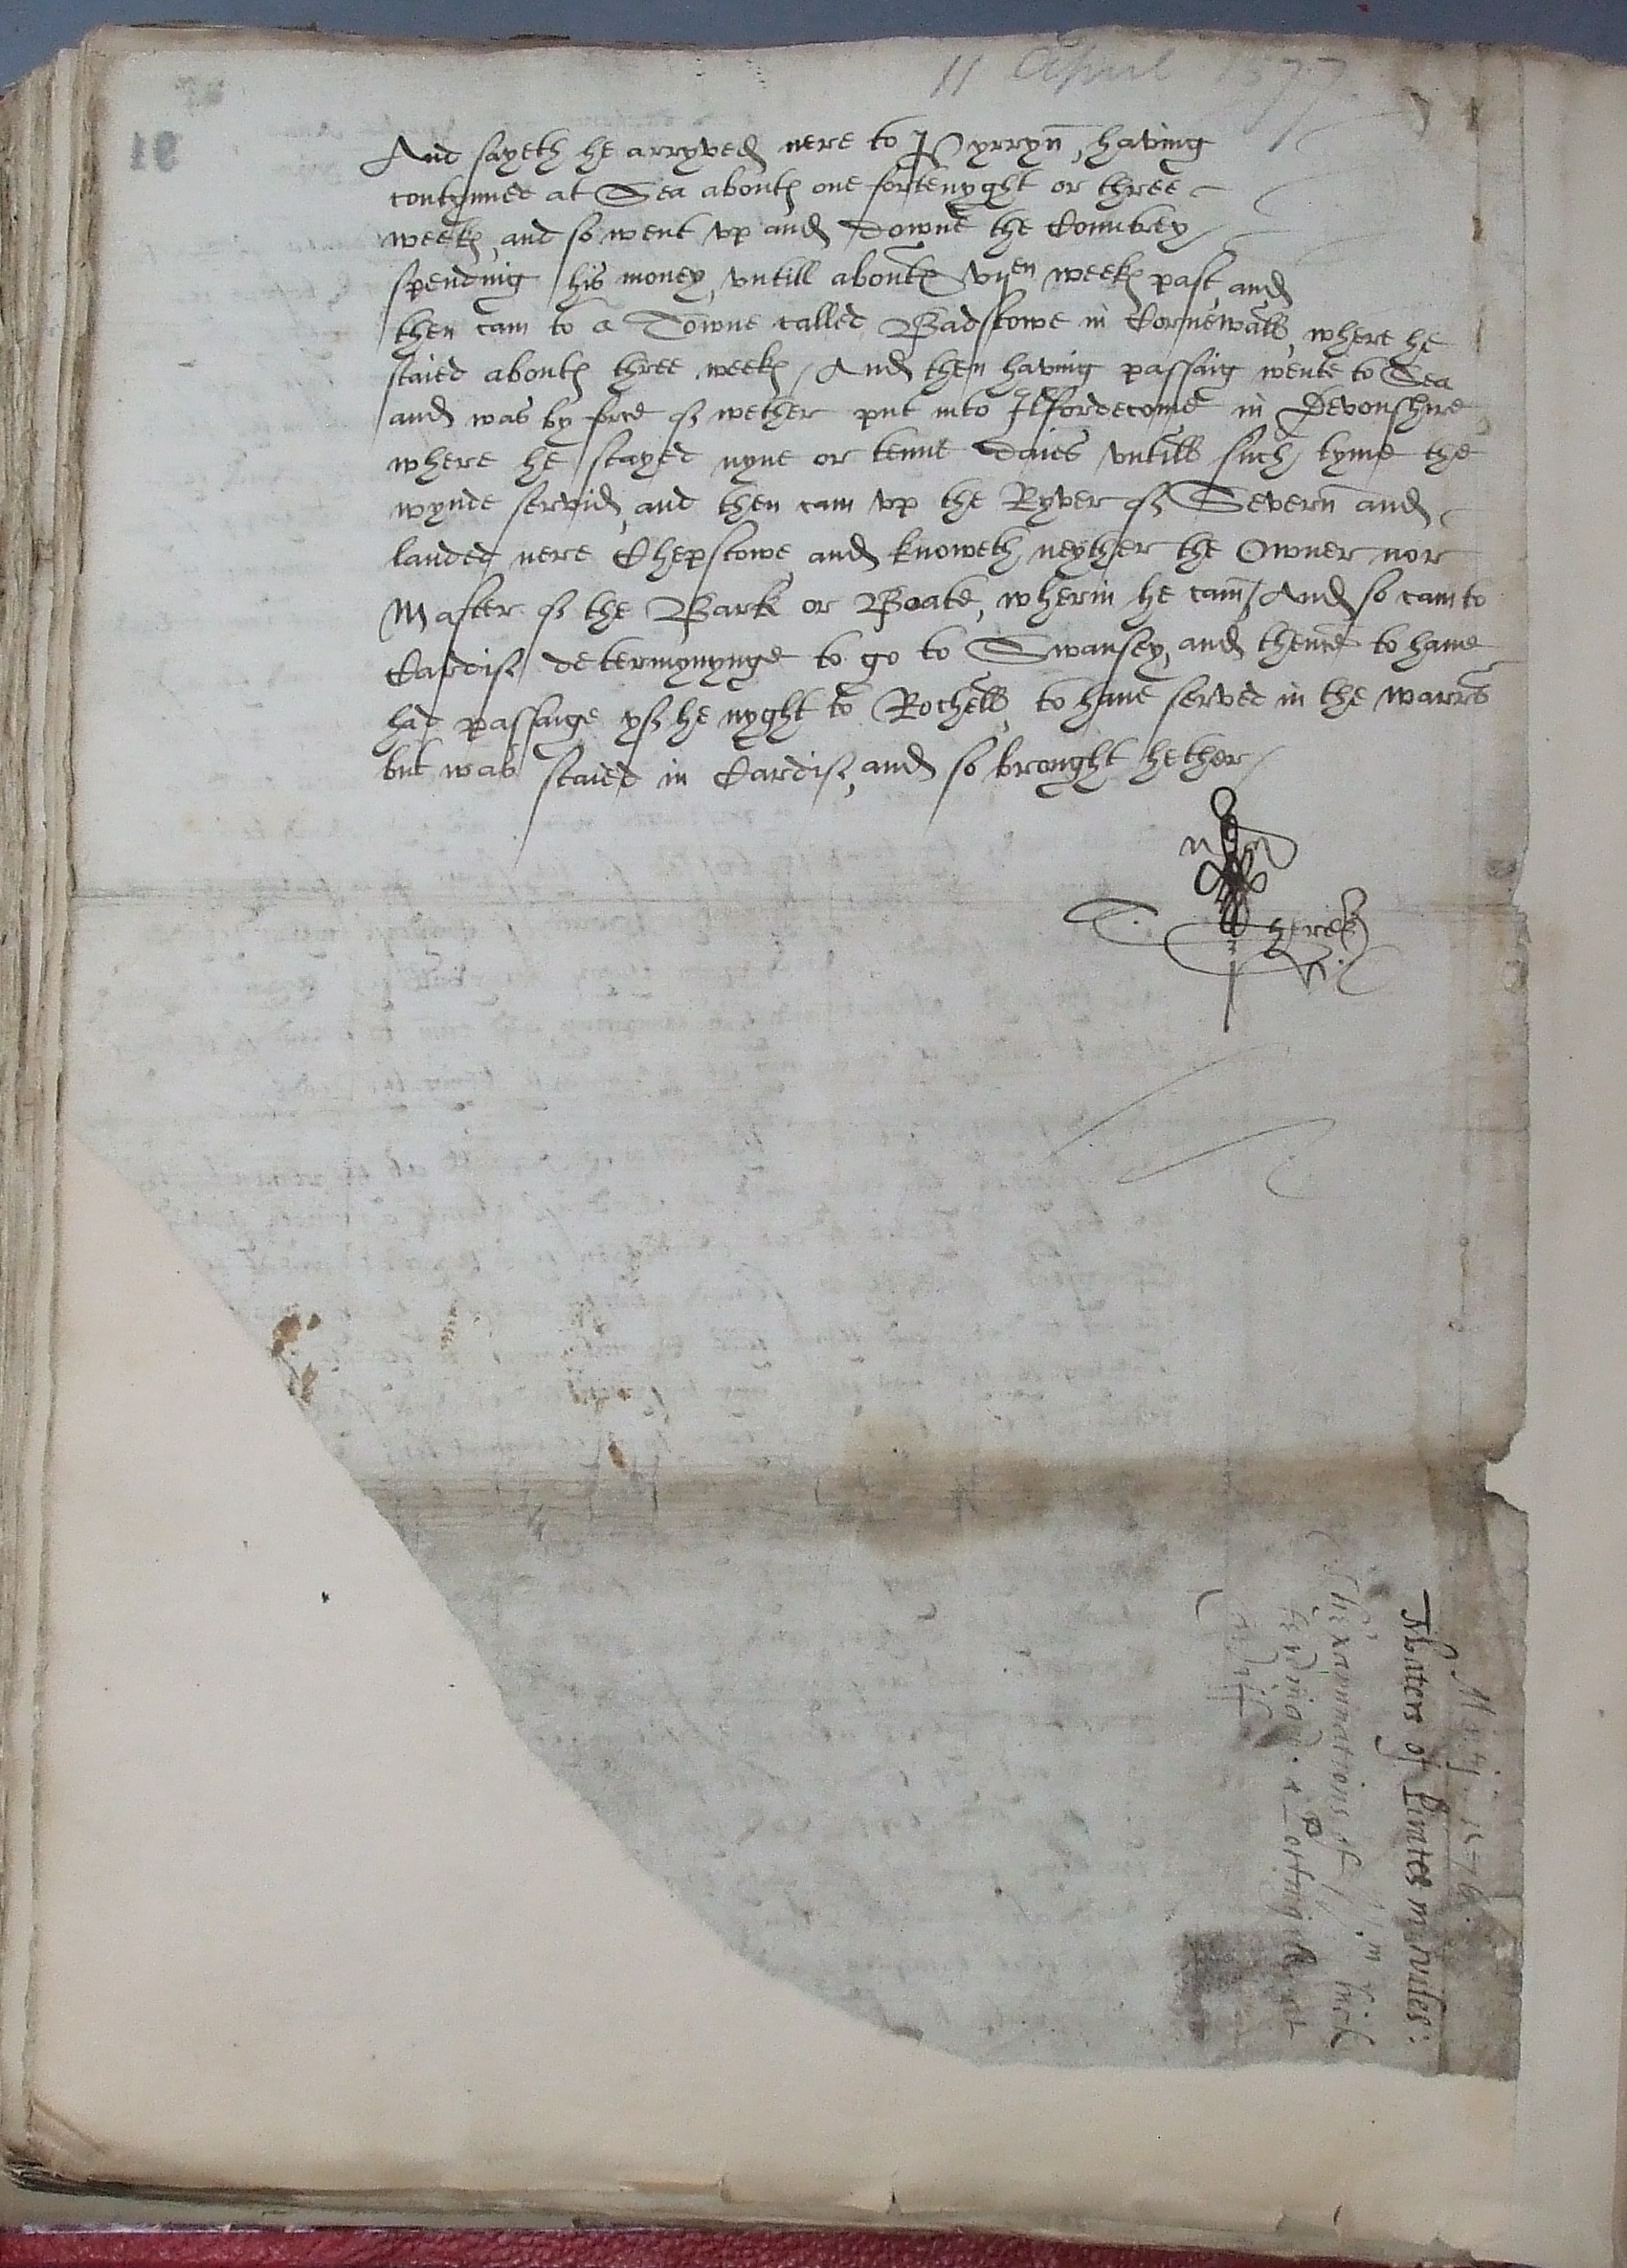 11 April 1577
91
And sayeth he arryved nere to Pyrryn, having
contynued at Sea about one fortenyght or three
weekes, and so went vp and Downe the Countrey
spending his money, vntill about vijen weekes past, and
then cam to a Towne called Padstowe in Cornewall, where he
staied about three weekes / And then having passaig wente to Sea
and was by force of wether put into Ilfordecome in Devonshire
where he stayed nyne or tenne Daies vntill such tyme the
wynde servid, and then cam vp the Ryver of Severn and
landed nere Chepstowe and knoweth neyther the Owner nor
Master of the Bark or Boate, wherin he cam / And so cam to
Cardif determynynge to go to Swansey, and thence to haue
had passaige yf he myght to Rochell, to haue served in the warrs
but was staied in Cardif, and so brought hether /
Maij. 1576
Maters of Pirates in Wales:
Th'examinations of
a Portingall at